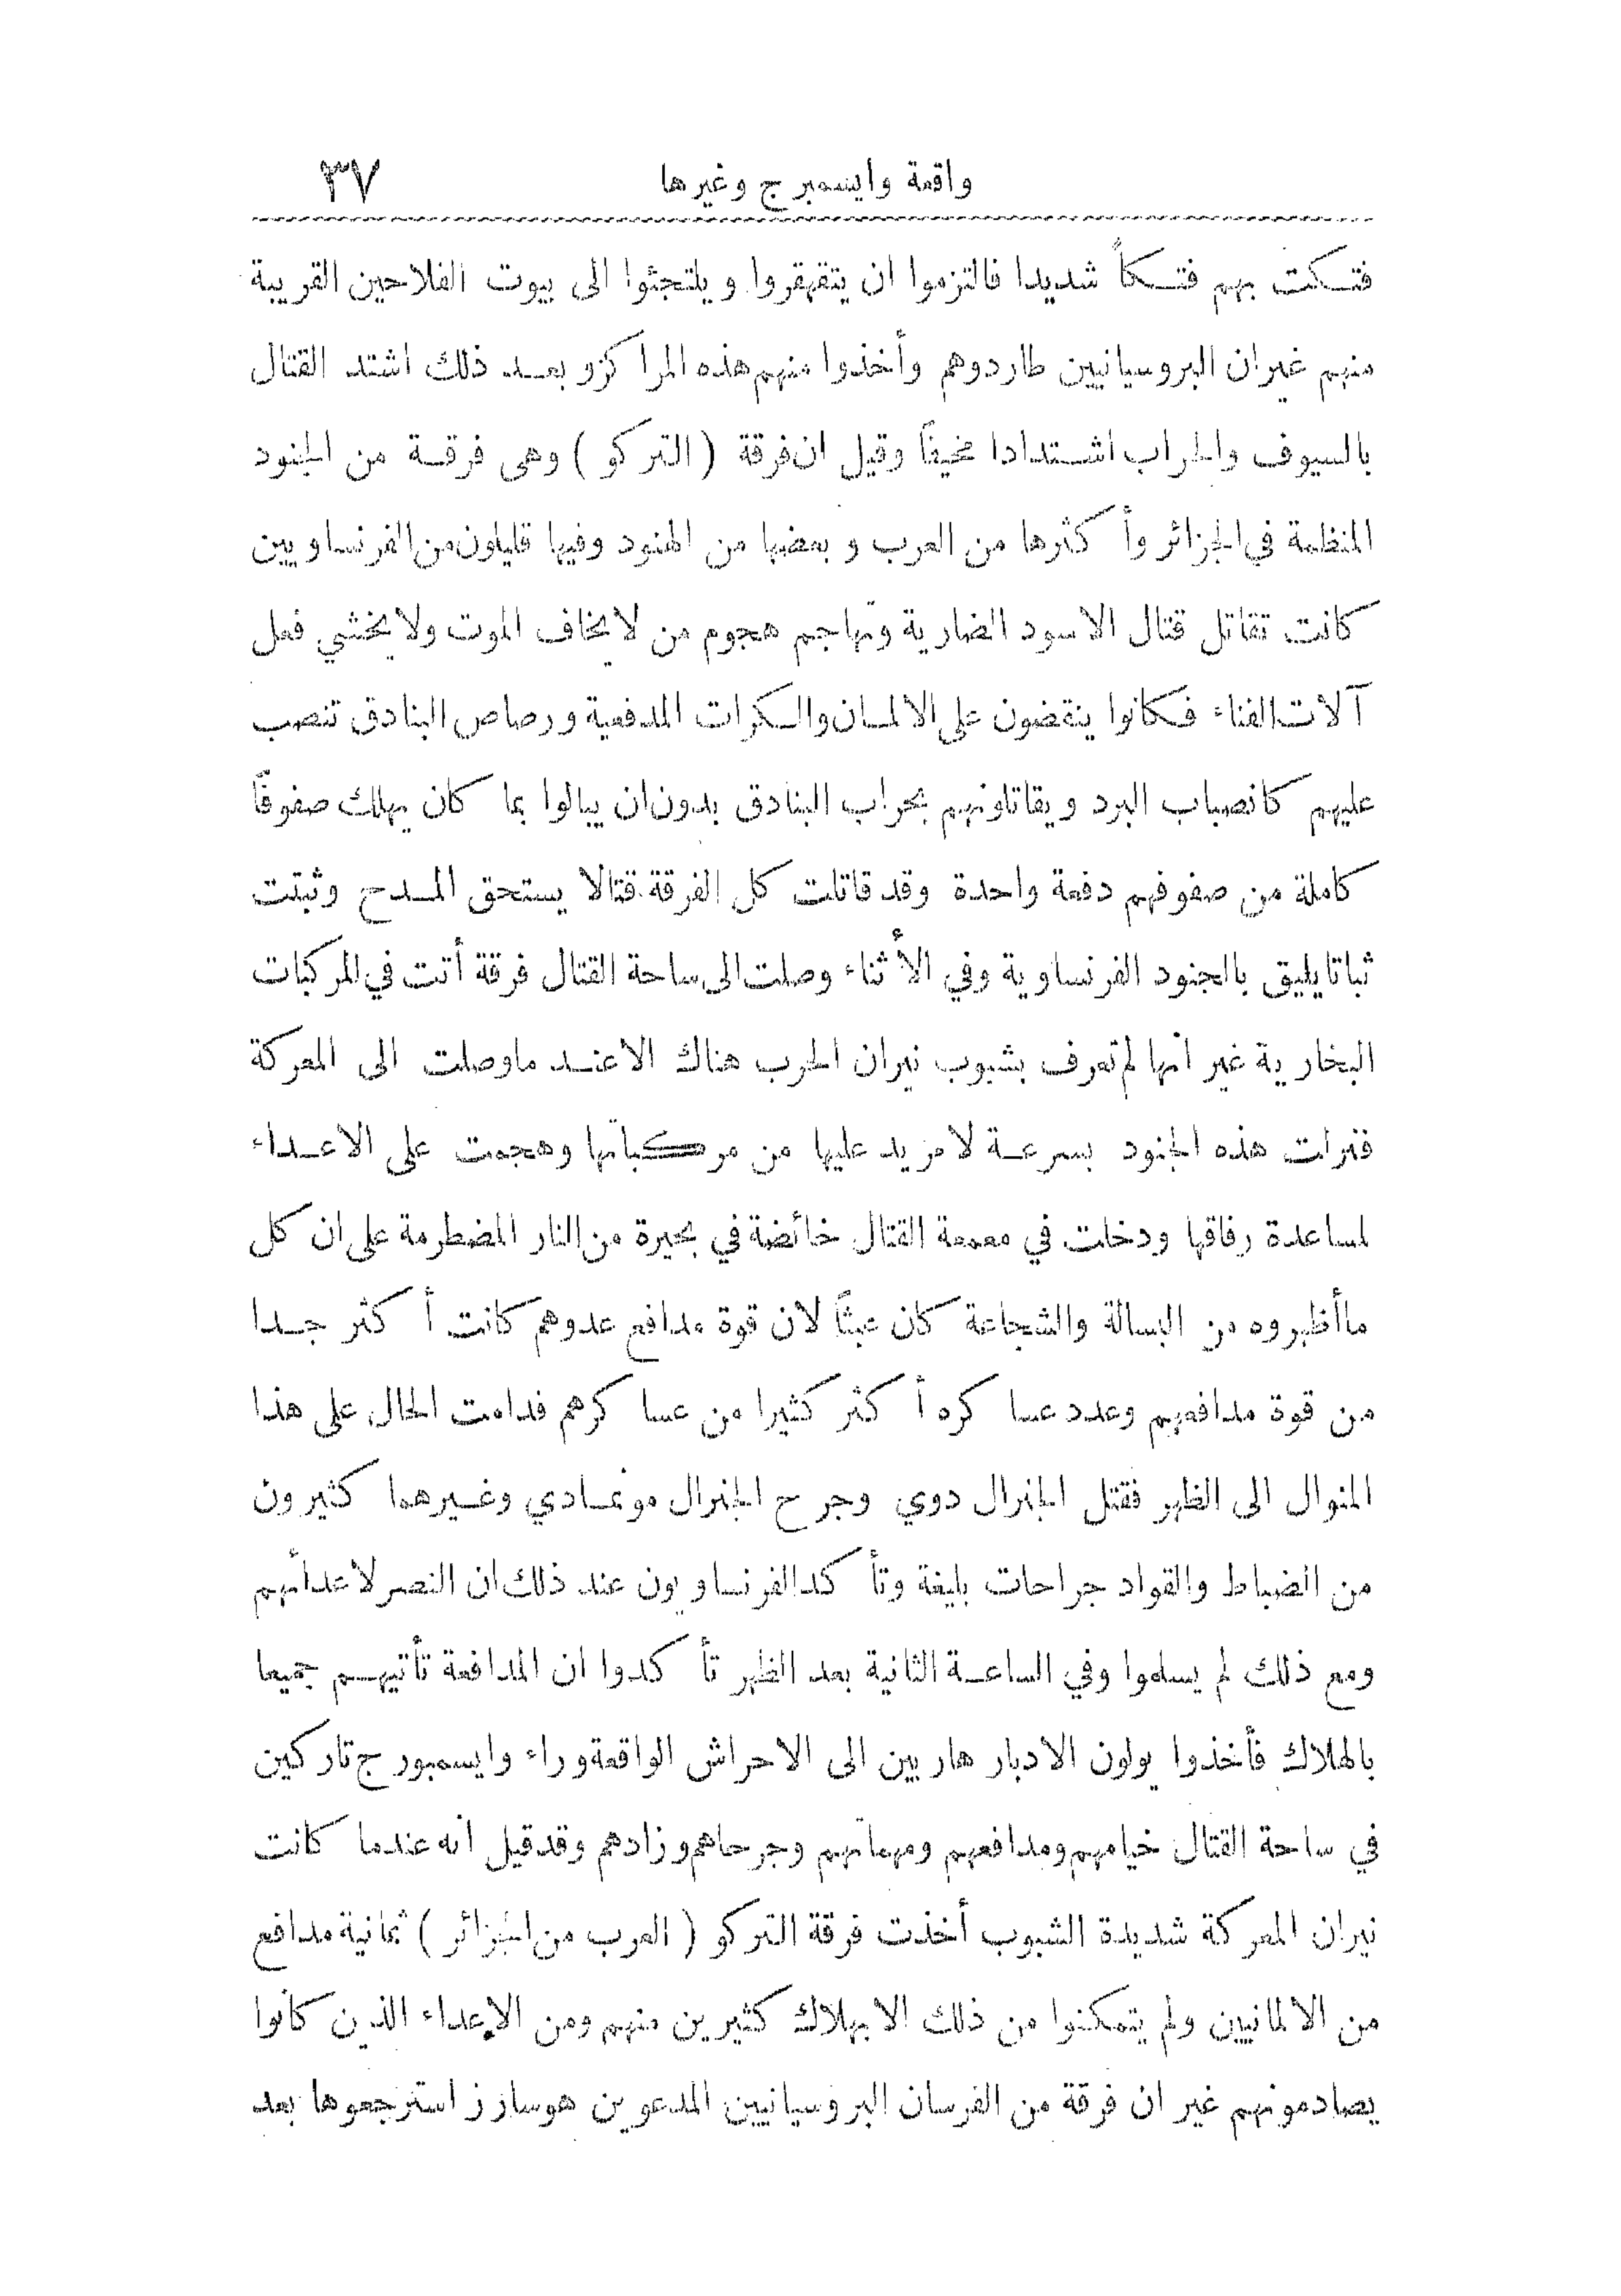 واقعة وايسمبرج وغيرها ٣٧
فتكت بهم فتكاً شديدا فالتزموا ان يتقهقروا ويلتجئوا الى بيوت الفلاحين القريبة
منهم غير ان البروسيانيين طاردوهم وأخذوا منهم هذه المراكز وبعد ذلك اشتد القتال
بالسيوف والحراب اشتدادا مخيفاً وقيل ان فرقة ( التركو ) وهى فرقة من الجنود
المنظمة في الجزائر وأكثرها من العرب وبعضها من الهنود وفيها قليلون من الفرنساويين
كانت تقاتل قتال الاسود الضارية وتهاجم هجوم من لا يخاف الموت ولا يخشي فعل
آلات الفناء فكانوا ينقضون على الالمان والكرات المدفعية ورصاص البنادق تنصب
عليهم كانصباب البرد ويقاتلونهم بحراب البنادق بدون ان يبالوا بما كان يهلك صفوفاً
كاملة من صفوفهم دفعة واحدة وقد قاتلت كل الفرقة قتالا يستحق المدح وثبتت
ثباتا يليق بالجنود الفرنساوية وفي الأثناء وصلت الى ساحة القتال فرقة أتت في المركبات
البخارية غير انها لم تعرف بشبوب نيران الحرب هناك الا عند ما وصلت الى المعركة
فنزلت هذه الجنود بسرعة لا مزيد عليها من مركباتها وهجمت على الاعداء
لمساعدة رفاقها ودخلت في معمعة القتال خائضة في بحيرة من النار المضطرمة على ان كل
ما أظهروه من البسالة والشجاعة كان عبثاً لان قوة مدافع عدوهم كانت أكثر جدا
من قوة مدافعهم وعدد عساكره أكثر كثيرا من عساكرهم فدامت الحال على هذا
المنوال الى الظهر فقتل الجنرال دوي وجرح الجنرال مونمادي وغيرهما كثيرون
من الضباط والقواد جراحات بليغة وتأكد الفرنساويون عند ذلك ان النصر لاعدائهم
ومع ذلك لم يسلموا وفي الساعة الثانية بعد الظهر تأكدوا ان المدافعة تأتيهم جميعا
بالهلاك فأخذوا يولون الادبار هاربين الى الاحراش الواقعة وراء وايسمبورج تاركين
في ساحة القتال خيامهم ومدافعهم ومهماتهم وجرحاهم وزادهم وقد قيل انه عندما كانت
نيران المعركة شديدة الشبوب أخذت فرقة التركو ( العرب من الجزائر ) ثمانية مدافع
من الالمانيين ولم يتمكنوا من ذلك الا بهلاك كثيرين منهم ومن الاعداء الذين كانوا
يصادمونهم غير ان فرقة من الفرسان البروسيانيين المدعوين هوسارز استرجعوها بعد